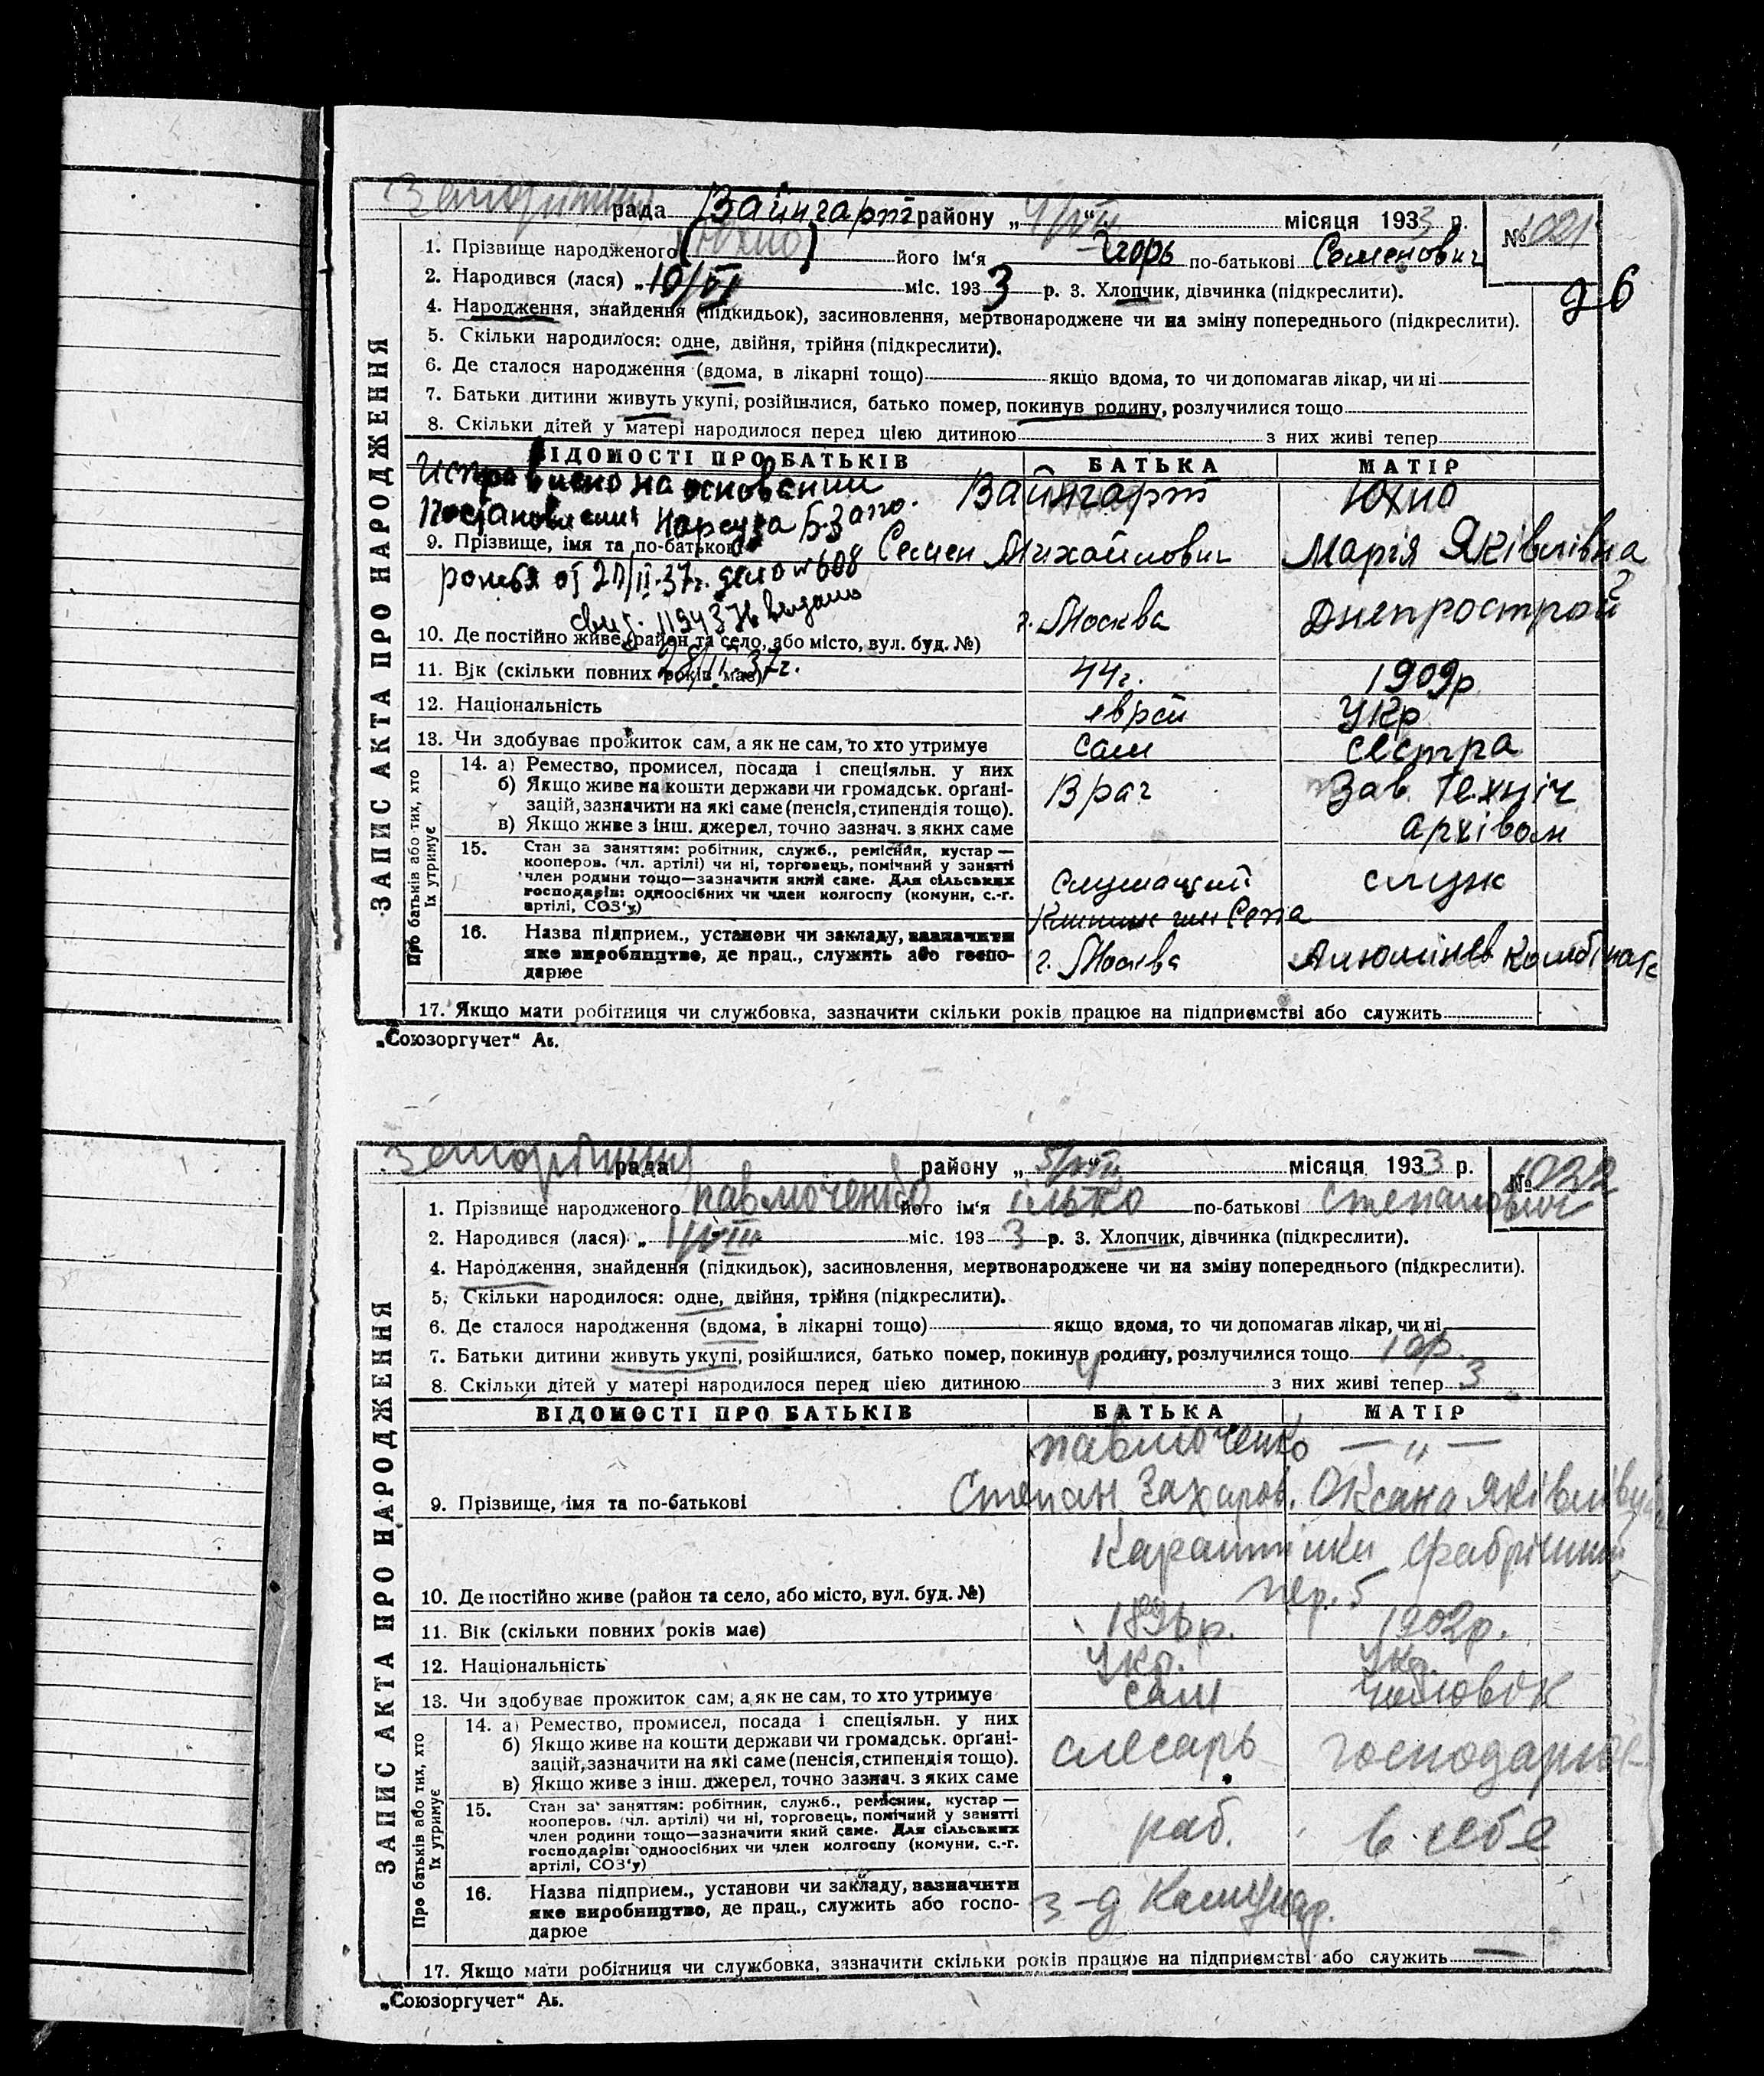 рада Вайнгарт району „4/VIII" місяця 1933 р. № 1021
1. Прізвище народженого (Юхно) його ім'я Ігорь по-батькові Семенович
2. Народився (лася) „10/VI міс. 1933 р. 3. Хлопчик, дівчинка (підкреслити).
96
4. Народження, знайдення (підкидьок), засиновлення, мертвонароджене чи на зміну попереднього (підкреслити).
5. Скільки народилося: одне, двійня, трійня (підкреслити).
6. Де сталося народження (вдома, в лікарні тощо) якщо вдома, то чи допомагав лікар, чи ні
7. Батьки дитини живуть укупі, розійшлися, батько помер, покинув родину, розлучилися тощо
8. Скільки дітей у матері народилося перед цією дитиною з них живі тепер
ЗАПИС АКТА ПРО НАРОДЖЕННЯ
ВІДОМОСТІ ПРО БАТЬКІВ БАТЬКА МАТІР
Исправлено на основании Вайнгарт Юхно
Постановления Нарсуда Б.Запо.
9. Прізвище, імя та по-батькові Семен Михайлович Марія Яківлівна
рожья от 20/II-37г. дело № 608
свид. выдано
г. Москва Днепрострой
10. Де постійно живе (район та село, або місто, вул. буд. №)
11. Вік (скільки повних років має) 44г. 1909р
12. Національність еврей Укр
13. Чи здобуває прожиток сам, а як не сам, то хто утримує сам сестра
Про батьків або тих, хто їх утримує
14. а) Ремество, промисел, посада і спеціяльн. у них
б) Якщо живе на кошти держави чи громадськ. органі- Врач Зав. Техніч
зацій, зазначити на які саме (пенсія, стипендія тощо).
в) Якщо живе з інш. джерел, точно зазнач. з яких саме архівом
15. Стан за заняттям: робітник, служб., ремісник, кустар —
кооперов. (чл. артілі) чи ні, торговець, помічний у занятті
член родини тощо—зазначити який саме. Для сільських Служащий служ
господарів: одноосібних чи член колгоспу (комуни, с.-г.
артілі, СОЗ'у)
16. Назва підприєм., установи чи закладу, зазначити
яке виробництво, де прац., служить або госпо- г. Москва Алюмінєв Комбінат
дарює
17. Якщо мати робітниця чи службовка, зазначити скільки років працює на підприємстві або служить
„Союзоргучет" Аб.
рада району „5/VIII" місяця 1933 р. № 1022
1. Прізвище народженого Павлюченко його ім'я Ілько по-батькові Степанович
2. Народився (лася) „1/VIII міс. 1933 р. 3. Хлопчик, дівчинка (підкреслити).
4. Народження, знайдення (підкидьок), засиновлення, мертвонароджене чи на зміну попереднього (підкреслити).
5. Скільки народилося: одне, двійня, трійня (підкреслити).
6. Де сталося народження (вдома, в лікарні тощо) якщо вдома, то чи допомагав лікар, чи ні
7. Батьки дитини живуть укупі, розійшлися, батько помер, покинув родину, розлучилися тощо 10р.
8. Скільки дітей у матері народилося перед цією дитиною 4 з них живі тепер 3
ЗАПИС АКТА ПРО НАРОДЖЕННЯ
ВІДОМОСТІ ПРО БАТЬКІВ БАТЬКА МАТІР
Павлюченко — " —
9. Прізвище, імя та по-батькові Степан Захаров. Оксана Яківлівна
Карантинки Фабрічний
10. Де постійно живе (район та село, або місто, вул. буд. №) пер. 5
11. Вік (скільки повних років має) 1896р. 1902р.
12. Національність Укр. Укр.
13. Чи здобуває прожиток сам, а як не сам, то хто утримує сам чоловік
Про батьків або тих, хто їх утримує
14. а) Ремество, промисел, посада і спеціяльн. у них
б) Якщо живе на кошти держави чи громадськ. органі- слесарь господарює
зацій, зазначити на які саме (пенсія, стипендія тощо).
в) Якщо живе з інш. джерел, точно зазнач. з яких саме
15. Стан за заняттям: робітник, служб., ремісник, кустар —
кооперов. (чл. артілі) чи ні, торговець, помічний у занятті
член родини тощо—зазначити який саме. Для сільських раб. в себе
господарів: одноосібних чи член колгоспу (комуни, с.-г.
артілі, СОЗ'у)
16. Назва підприєм., установи чи закладу, зазначити
яке виробництво, де прац., служить або госпо- з-д Комунар.
дарює
17. Якщо мати робітниця чи службовка, зазначити скільки років працює на підприємстві або служить —
„Союзоргучет" Аб.